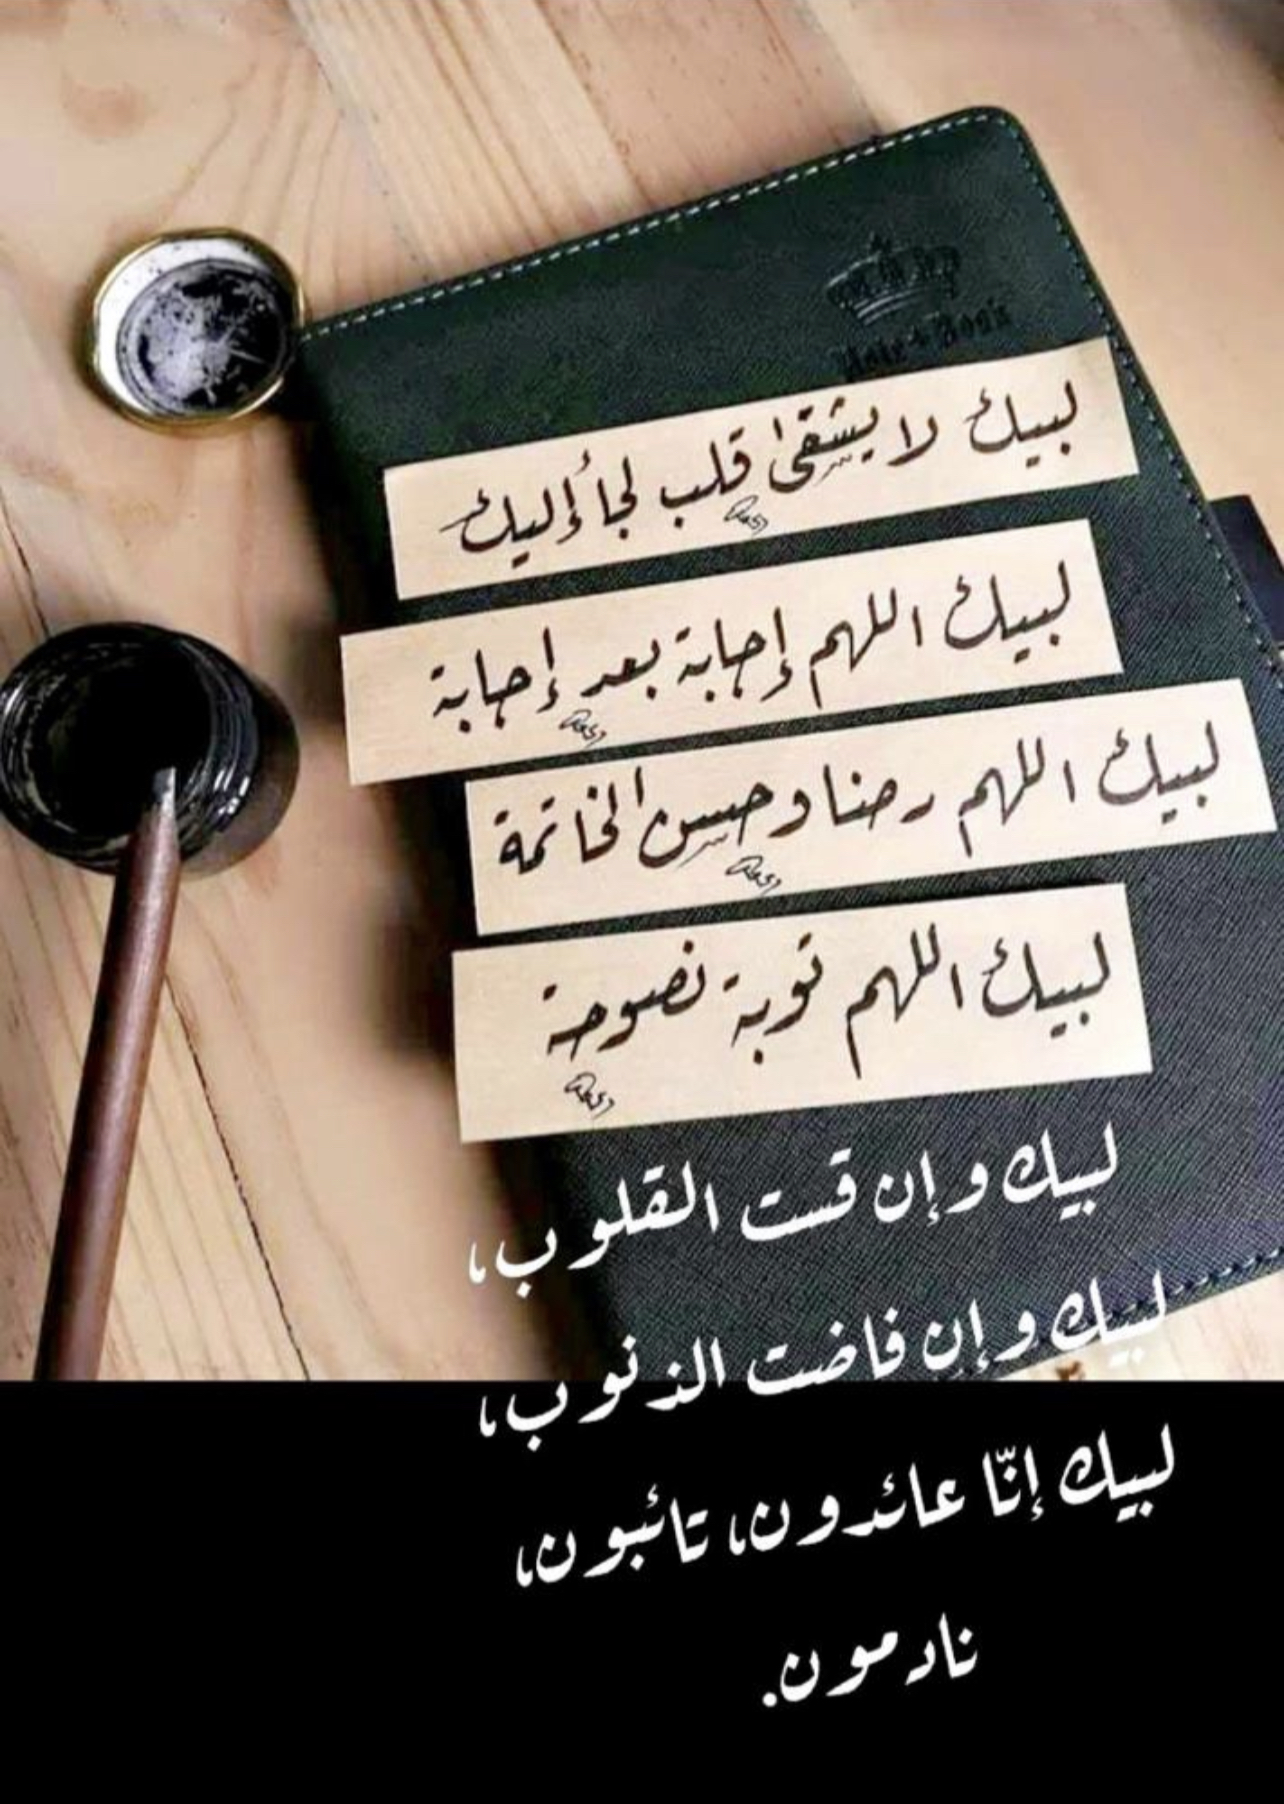 Note Book
لبيك لا يشقىٰ قلب لجأ إليك
لبيك اللهم إجابة بعد إجابة
لبيك اللهم رضا وحسن الخاتمة
لبيك اللهم توبة نصوحة
لبيك وإن قست القلوب،
لبيك وإن فاضت الذنوب،
لبيك إنّا عائدون، تائبون،
نادمون.